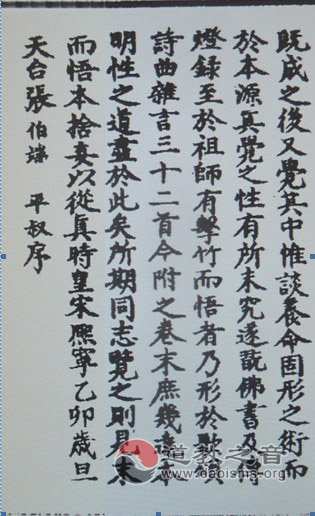 既成之後又覺其中惟談養命固形之術而
於本源真覺之性有所未究遂翫佛書及傳
燈錄至於祖師有擊竹而悟者乃形於歌頌
詩曲雜言三十二首今附之卷末庶幾達本
明性之道盡於此矣所期同志覽之則見末
而悟本捨妄以從真時皇宋熙寧乙卯歲旦
天台張伯端 平叔序
道教之音
www.daoisms.org